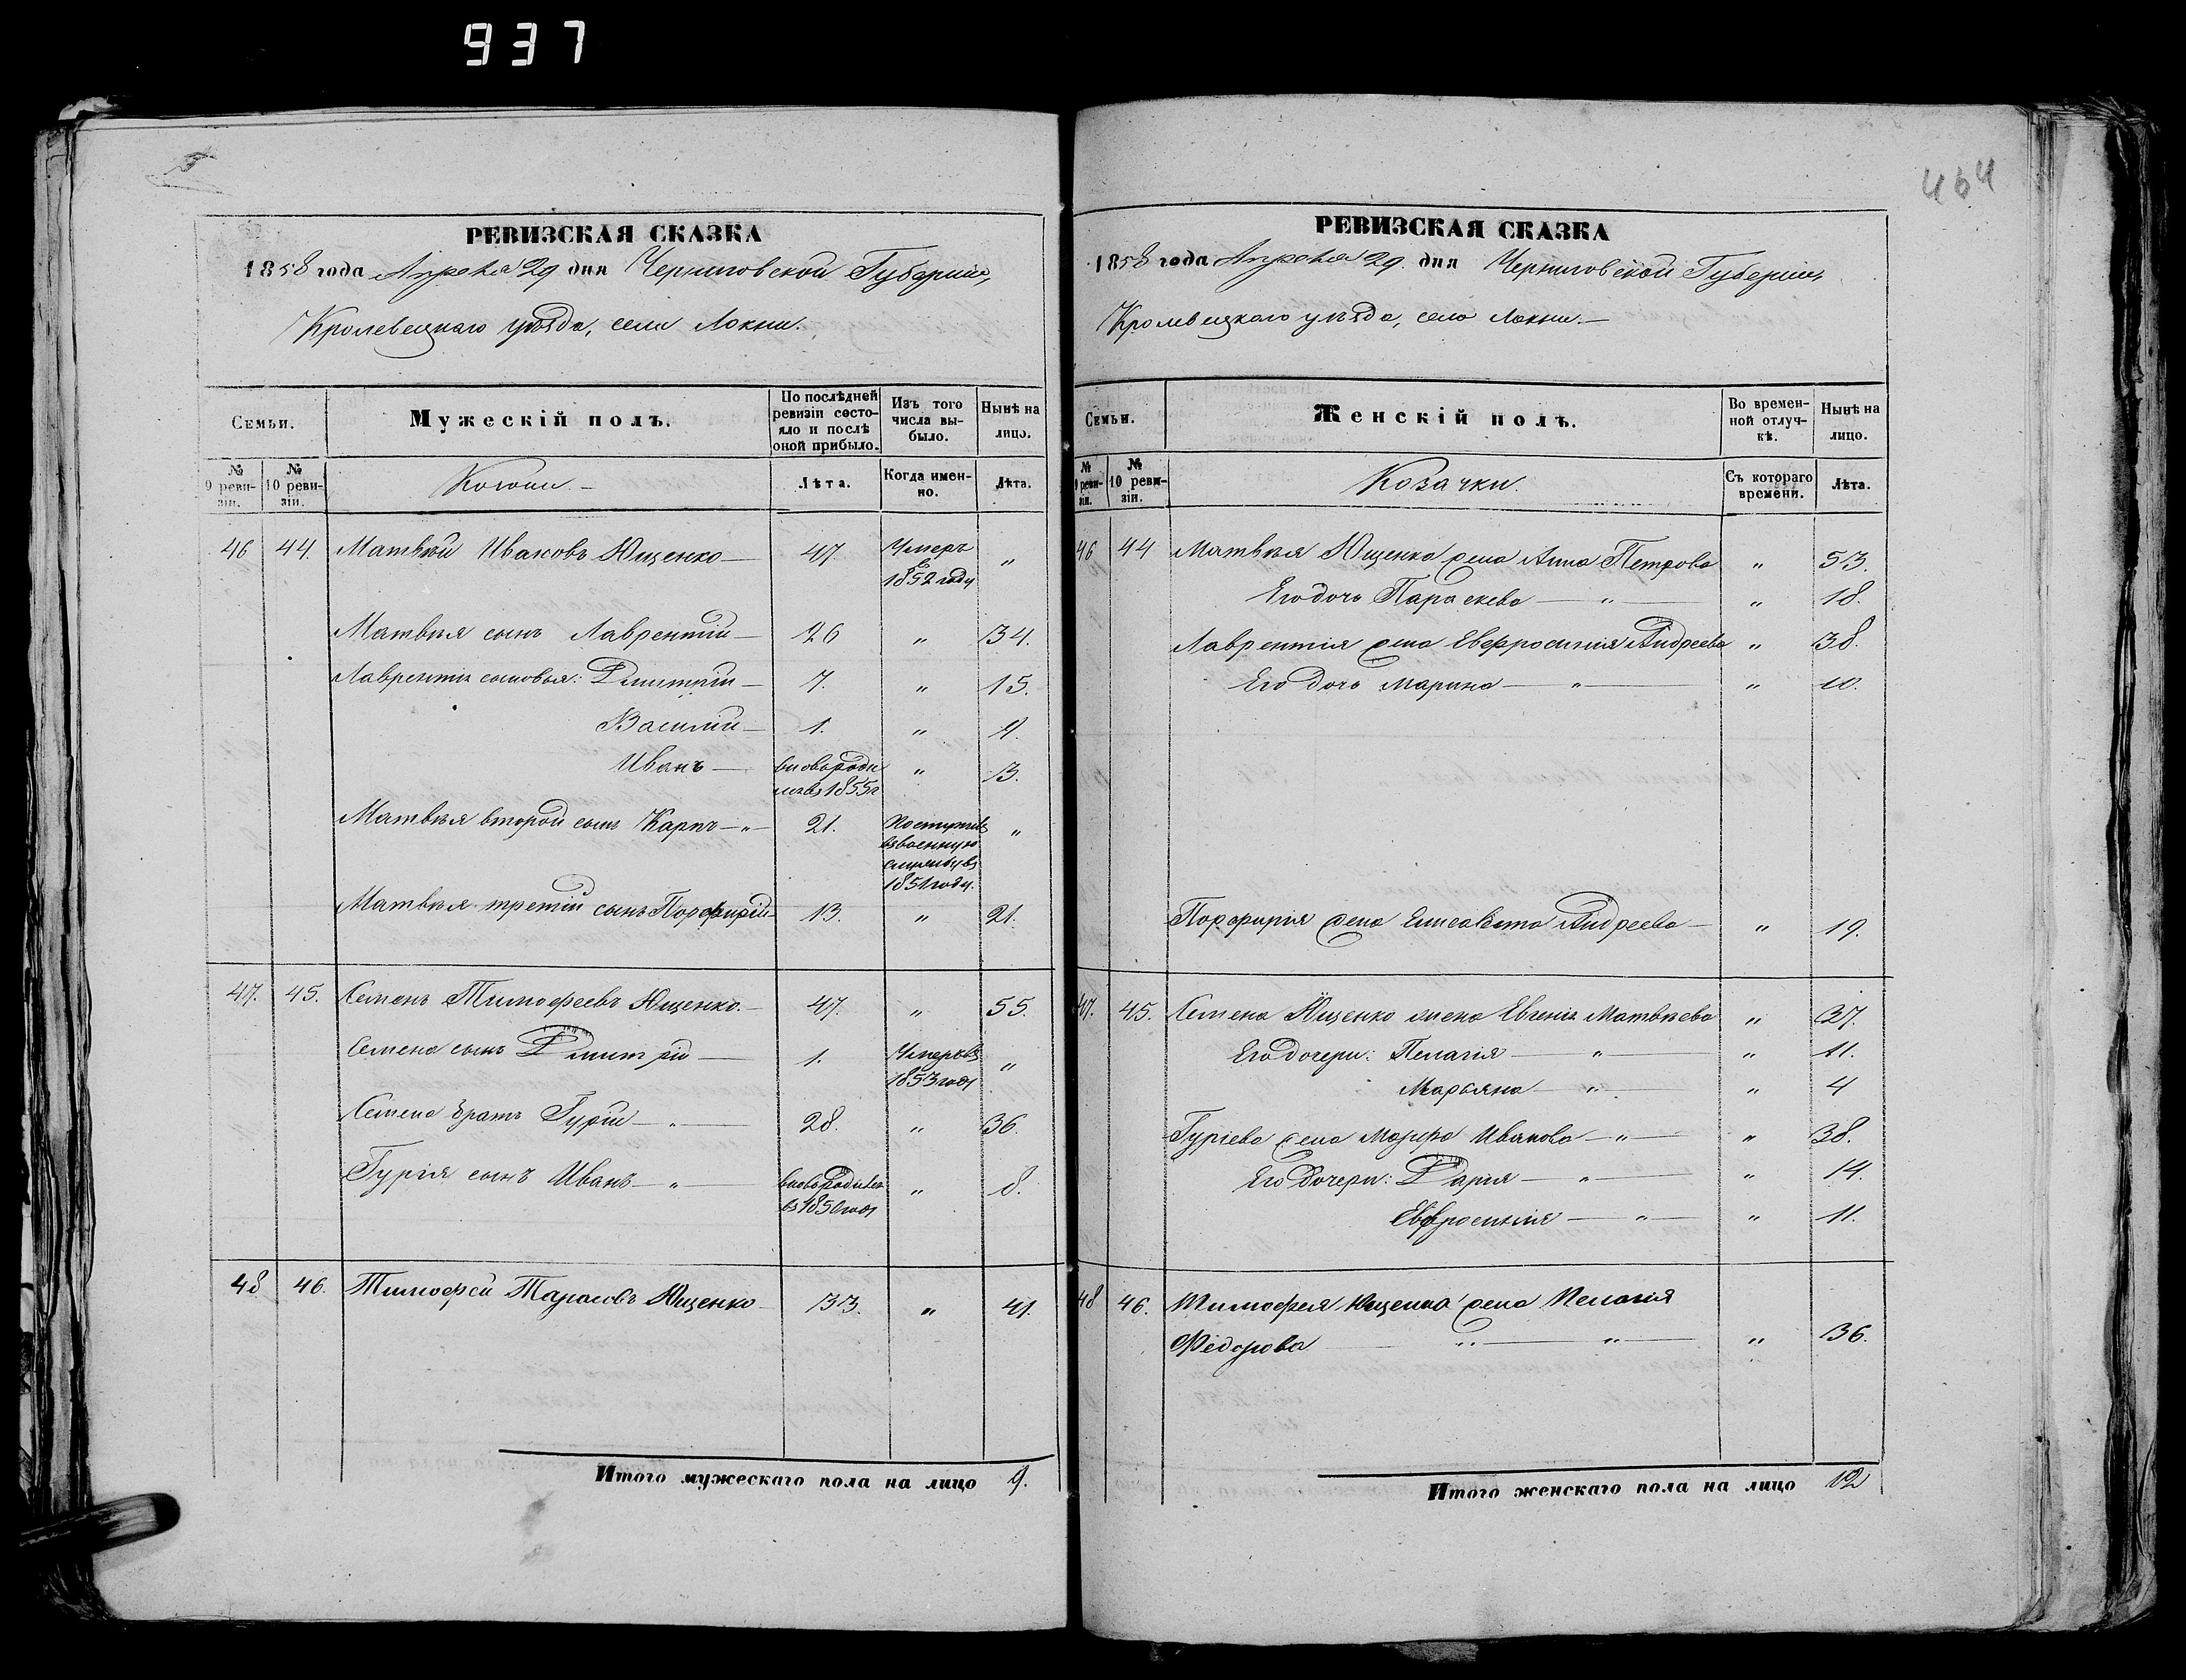 937
464
РЕВИЗСКАЯ СКАЗКА
1858 года Апреля 29 дня Черниговской Губерніи,
Кролевецкаго уѣзда, села Локни.
Семьи.
Мужескій полъ.
По послѣдней ревизіи состояло и послѣ оной прибыло.
Изъ того числа выбыло.
Нынѣ на лицо.
№ 9 ревизіи.
№ 10 ревизіи.
Козаки.
Лѣта.
Когда именно.
Лѣта.
46 44. Матвѣй Ивановъ Ющенко — 47. Умеръ в 1852 году "
Матвѣя сынъ Лаврентій — 26 " 34.
Лаврентія сыновья: Дмитрій — 7. " 15.
Василій — 1. " 9.
Иванъ — вновь роди лся въ 1855 г " 3.
Матвѣя второй сынъ Карпъ — " — 21. Поступилъ въ военную службу въ 1851 году. "
Матвѣя третій сынъ Порфирій — 13. " 21.
47. 45. Семенъ Тимофеевъ Ющенко. — 47. " 55.
Семена сынъ Дмитрій — 1. Умеръ въ 1853 году "
Семена братъ Гурій — " — 28. " 36.
Гурія сынъ Иванъ — " — вновь родился въ 1850 году " 8.
48 46. Тимофей Тарасовъ Ющенко — 33. " 41.
Итого мужескаго пола на лицо 9.
РЕВИЗСКАЯ СКАЗКА
1858 года Апреля 29. дня Черниговской Губерніи,
Кролевецкаго уѣзда, села Локни. —
Семьи.
Женскій полъ.
Во временной отлучкѣ.
Нынѣ на лицо.
№ 9 ревизіи.
№ 10 ревизіи.
Козачки.
Съ котораго времени.
Лѣта.
46 44 Матвѣя Ющенка жена Анна Петрова " 53.
Его дочь Параскева — " — " 18.
Лаврентія жена Евфросинія Андреева " 38.
Его дочь Марина — " — " 10.
Порфирія жена Елисавета Андреева — " 19.
47. 45. Семена Ющенко жена Евгенія Матвѣева " 37.
Его дочери: Пелагія — " — " 11.
Марьяна — " — " 4
Гуріева жена Марфа Иванова — " — " 38.
Его дочери: Дарія — " — " 14.
Евфросинія — " — " 11.
48 46. Тимофея Ющенка жена Пелагія
Фёдорова — " — " — " 36.
Итого женскаго пола на лицо 12